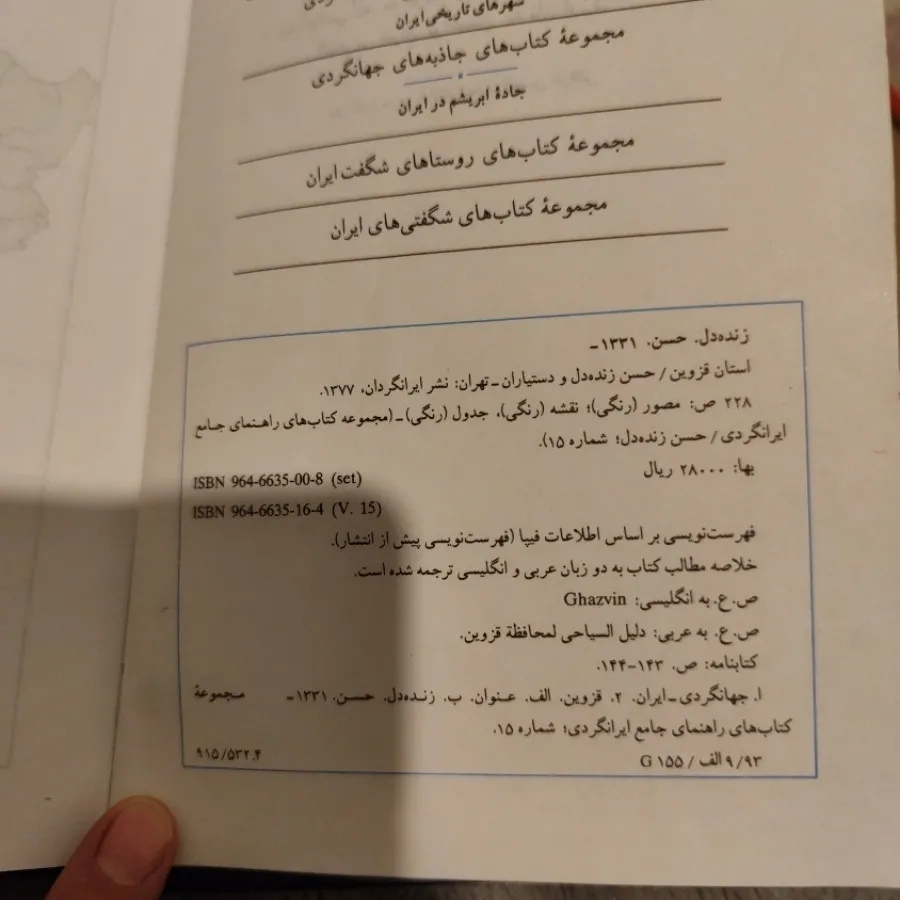 شهرهای تاریخی ایران
مجموعهٔ کتاب‌های جاذبه‌های جهانگردی
جادهٔ ابریشم در ایران
مجموعهٔ کتاب‌های روستاهای شگفت ایران
مجموعهٔ کتاب‌های شگفتی‌های ایران
زنده‌دل. حسن. ۱۳۳۱-
استان قزوین / حسن زنده‌دل و دستیاران ـ تهران: نشر ایرانگردان، ۱۳۷۷.
۲۲۸ ص: مصور (رنگی)؛ نقشه (رنگی)، جدول (رنگی) ـ (مجموعه کتاب‌های راهنمای جامع
ایرانگردی / حسن زنده‌دل؛ شماره ۱۵).
بها: ۲۸۰۰۰ ریال
ISBN 964-6635-00-8 (set)
ISBN 964-6635-16-4 (V. 15)
فهرست‌نویسی بر اساس اطلاعات فیپا (فهرست‌نویسی پیش از انتشار).
خلاصه مطالب کتاب به دو زبان عربی و انگلیسی ترجمه شده است.
ص.ع. به انگلیسی: Ghazvin
ص.ع. به عربی: دلیل السیاحی لمحافظة قزوین.
کتابنامه: ص. ۱۴۳-۱۴۴.
۱. جهانگردی ـ ایران. ۲. قزوین. الف. عنوان. ب. زنده‌دل. حسن. ۱۳۳۱- مجموعهٔ
کتاب‌های راهنمای جامع ایرانگردی؛ شماره ۱۵.
۹/۹۳ الف / G ۱۵۵ ۹۱۵/۵۳۲.۴